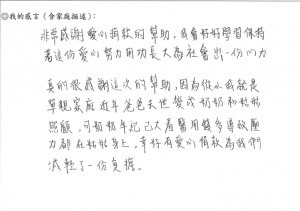 ◎我的感言(含家庭描述):
非常感謝愛心捐款的幫助,我會好好學習保持
著這份愛心努力用功長大為社會出一份心力
真的很感謝這次的幫助,因為從小我就是
單親家庭近年爸爸去世變成奶奶和姑姑
照顧,可奶奶年記已大看醫用錢多導致壓
力都在姑姑身上,幸好有愛心捐款為我們
減輕了一份負擔。